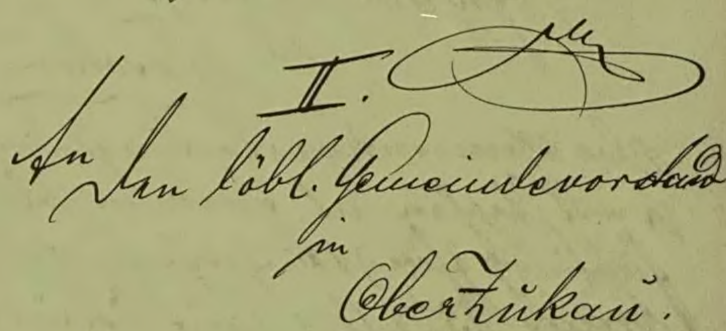 II.
An
Den löbl. Gemeindevorstand
in
OberZukau.